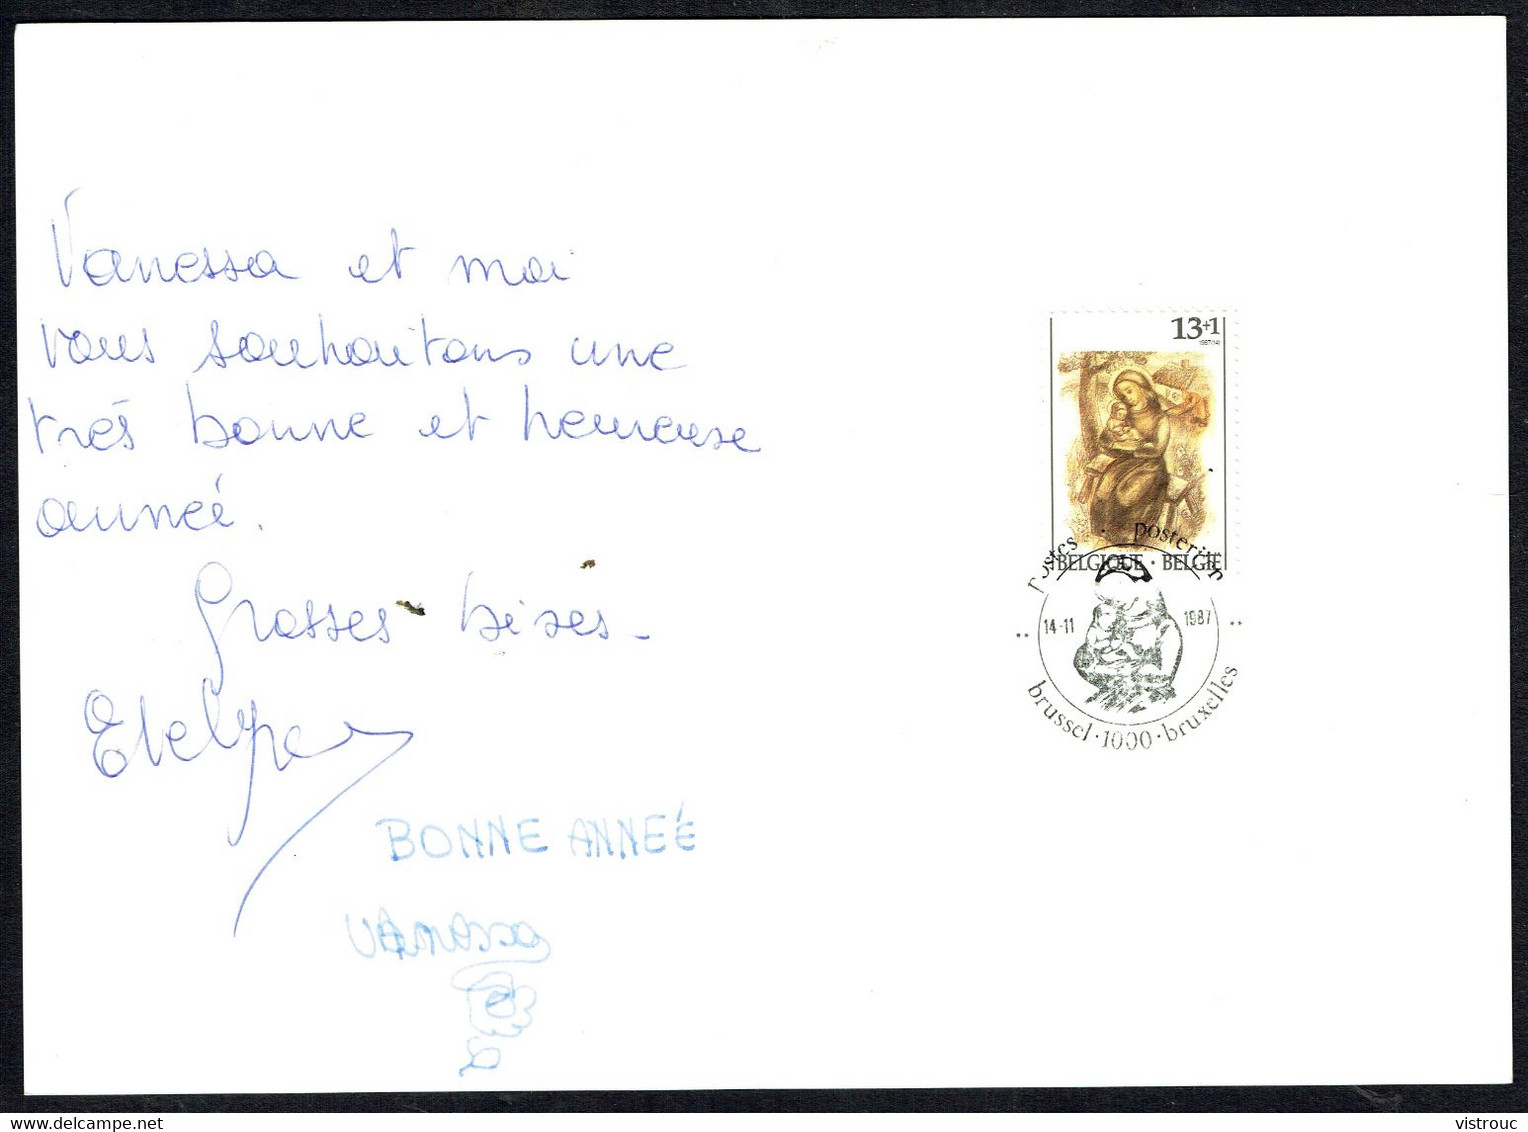 Vanessa et moi
vous souhaitons une
très bonne et heureuse
année.
Grosses bises -
BONNE ANNEÉ
VANESSA
13+1
1987(14)
BELGIQUE · BELGIË
postes · posterijen
14-11 1987
brussel · 1000 · bruxelles
vistrouc